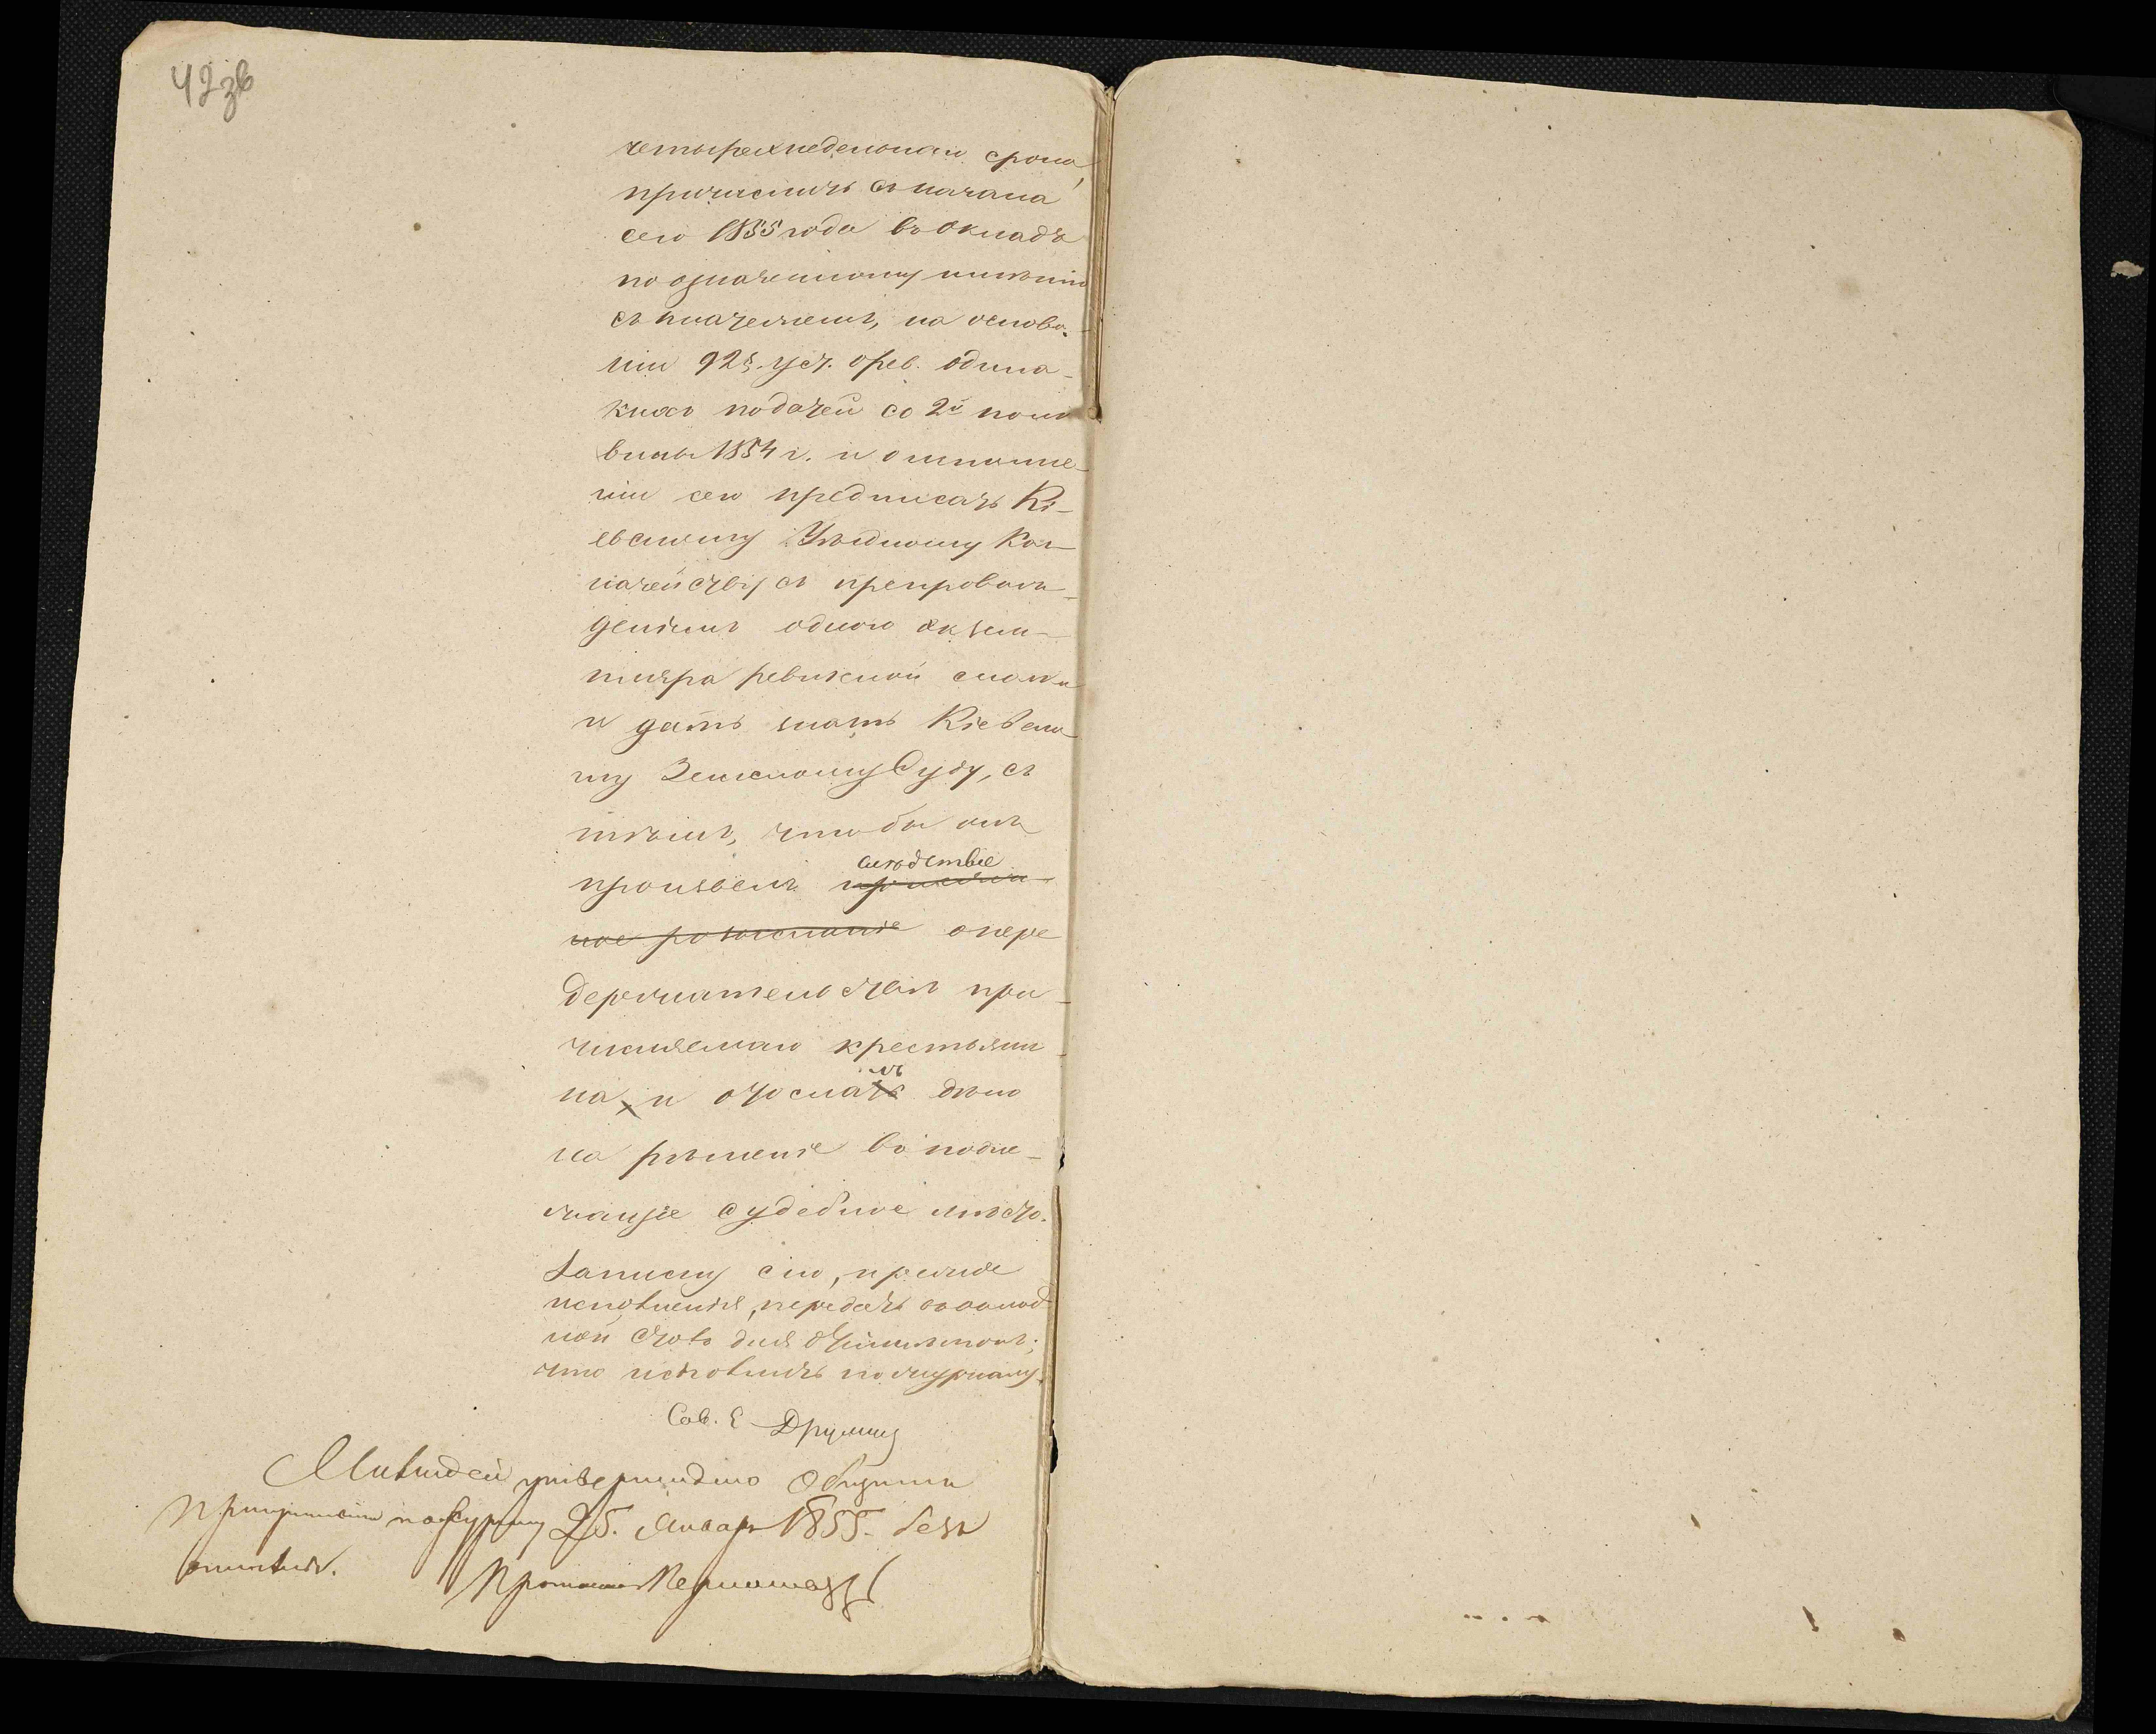 42зв
четырехнедельнаго срока,
причислить съ начала
сего 1855 года въ окладъ
по означенному имѣнію
съ платежемъ, на основа-
ніи 928. уст. о рев. одина-
кихъ податей со 2й поло
вины 1854 г. и о исполне-
ніи сего предписать Кі-
евскому Уѣздному Каз-
начейству, съ препровож-
деніемъ одного экзем-
пляра ревизской сказки
и дать знать Кіевско-
му Земскому Суду, съ
тѣмъ, чтобы онъ
слѣдствіе
произвелъ
ное розысканіе о пере
держательствѣ при-
числяемаго крестьяни-
на, и отослалъ дѣло
на рѣшеніе въ подле-
жащее судебное мѣсто.
Записку сію, прежде
исполненія, передать въ оклад
ной столъ для отмѣтокъ;
что исполнить по журналу.
Сов. Е
25. Январ 1855. безъ